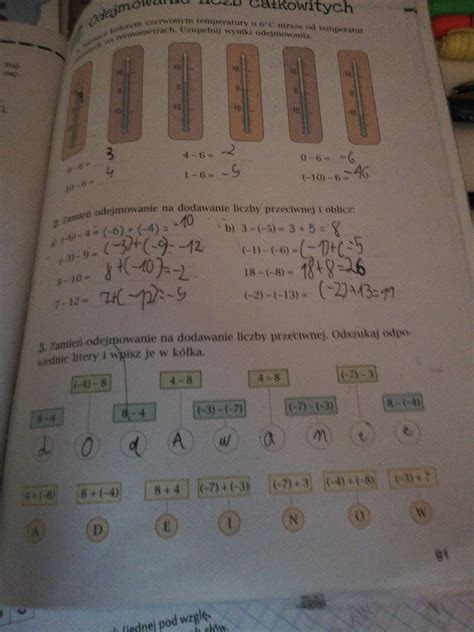 Odejmowanie liczb całkowitych
1. Zaznacz kolorem czerwonym temperatury o 6°C niższe od temperatur
na termometrach. Uzupełnij wyniki odejmowania.
10 10 10 10 10 10
-10 -10 -10 -10 -10 -10
9 - 6 = 3 4 - 6 = -2 0 - 6 = -6
10 - 6 = 4 1 - 6 = -5 (-10) - 6 = -46
2. Zamień odejmowanie na dodawanie liczby przeciwnej i oblicz:
a) (-6) - 4 = (-6) + (-4) = -10 b) 3 - (-5) = 3 + 5 = 8
(-3) - 9 = (-3)+(-9)=-12 (-1) - (-6) = (-1)+6=5
8 - 10 = 8+(-10)=-2 18 - (-8) = 18+8=26
7 - 12 = 7+(-12)=-5 (-2) - (-13) = (-2)+13=11
3. Zamień odejmowanie na dodawanie liczby przeciwnej. Odszukaj odpo-
wiednie litery i wpisz je w kółka.
(-4) - 8 4 - 8 4 - 8 (-7) - 3
8 - 4 8 - 4 (-3) - (-7) (-7) - (-3) 8 - (-4)
d O d A w a n i e
4 + (-8) 8 + (-4) 8 + 4 (-7) + (-3) (-7) + 3 (-4) + (-8) (-3) + 7
A D E I N O W
91